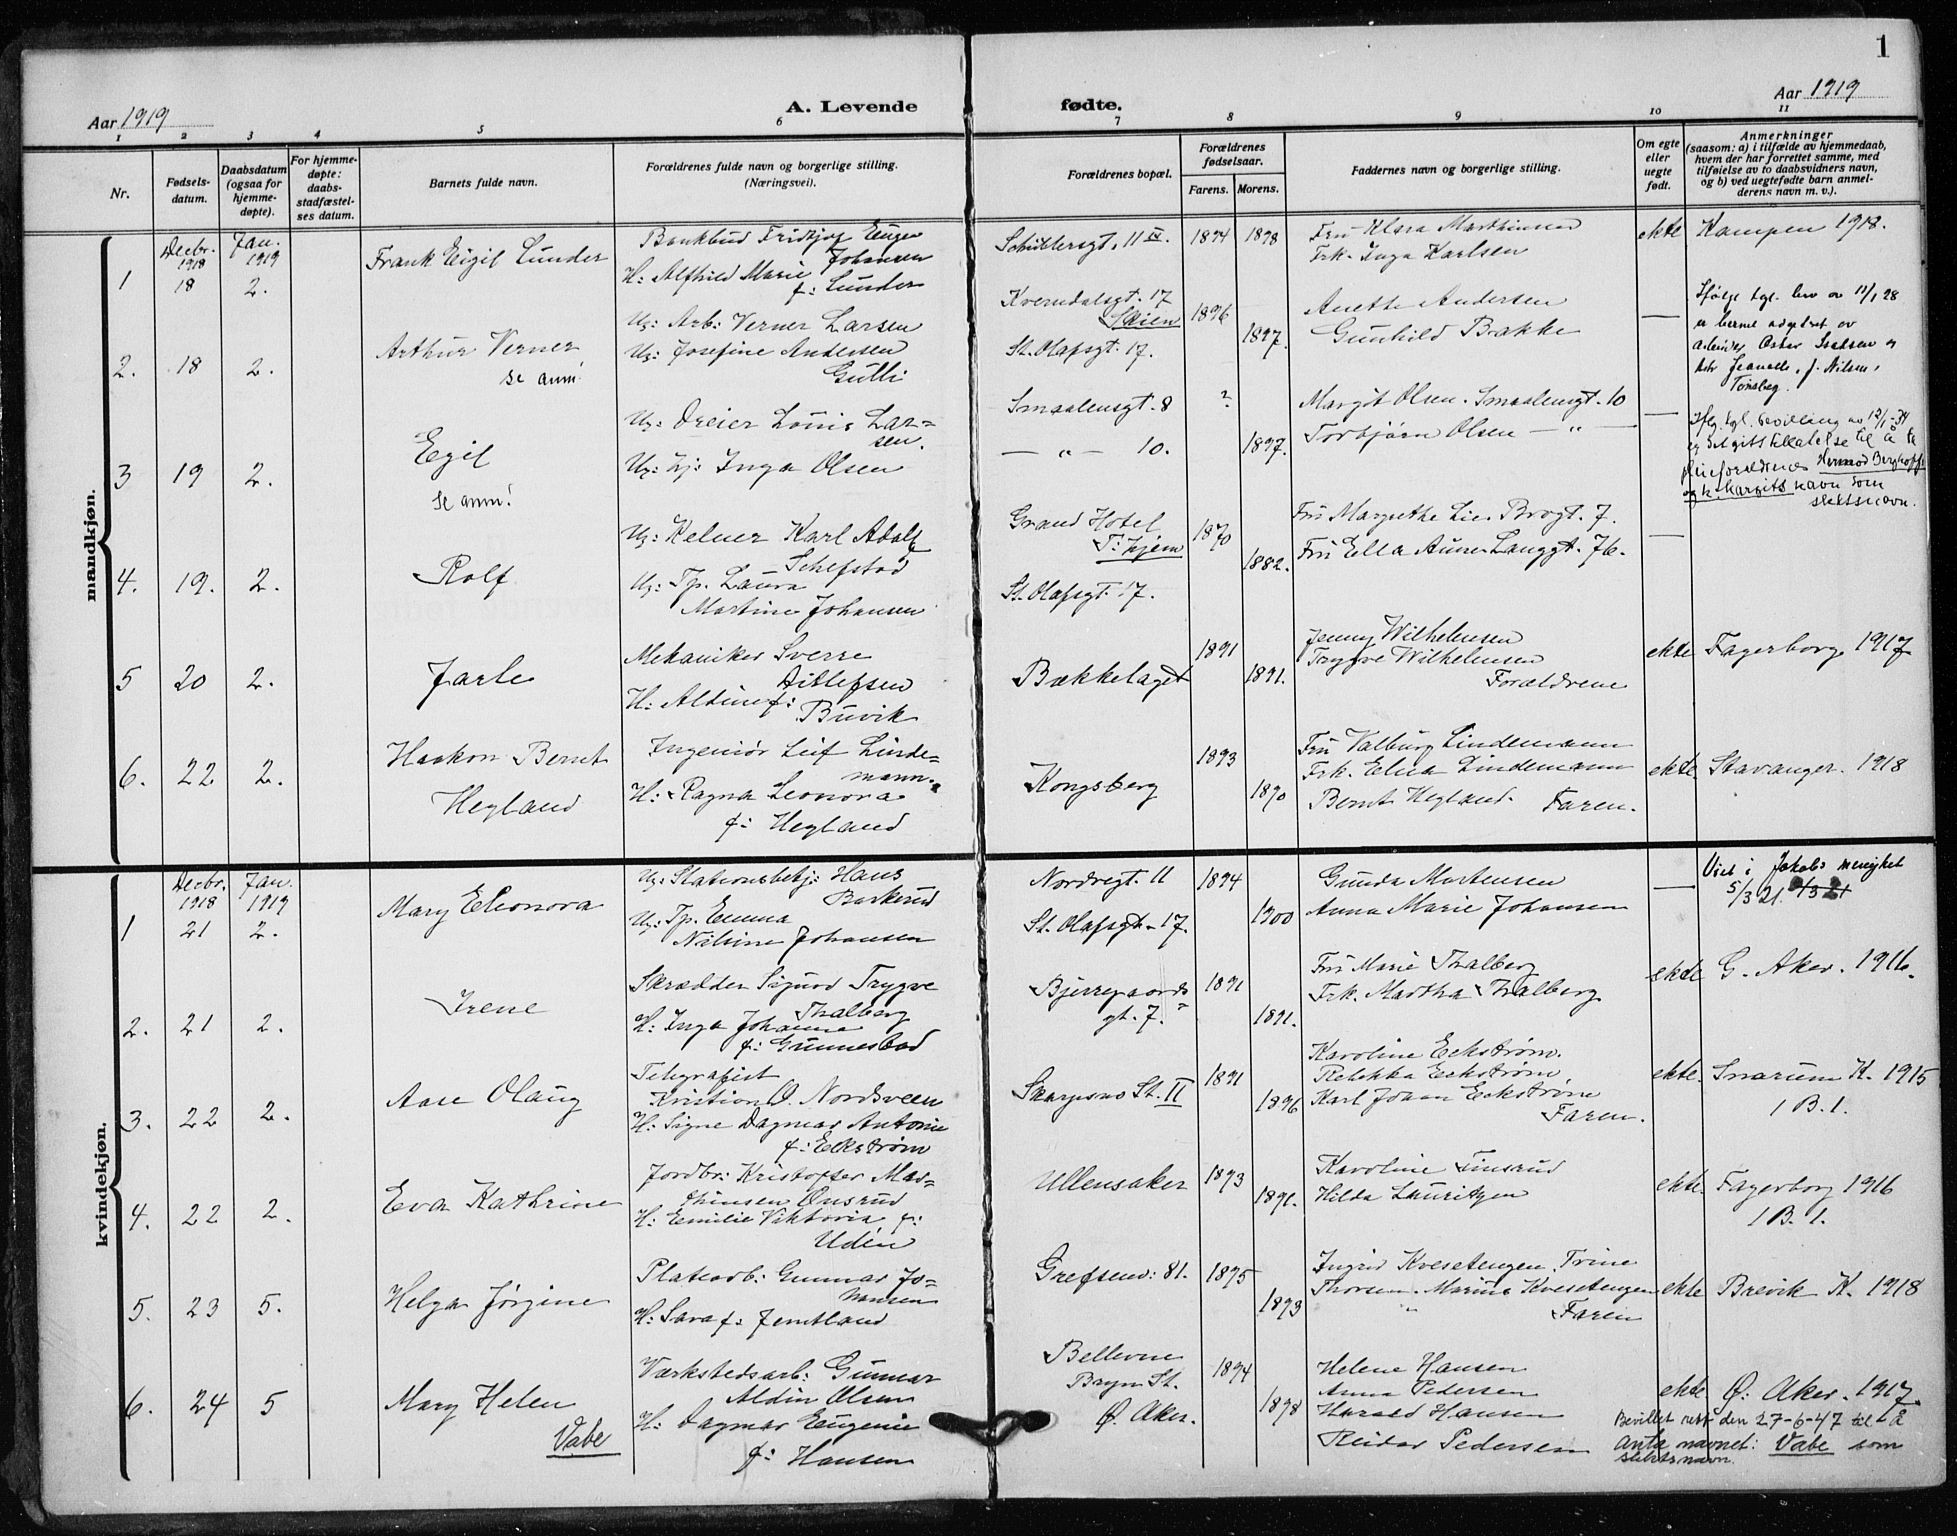 1
Aar 1919
A. Levende fødte.
Aar 1919
1 2 3 4 5 6 7 8 9 10 11
Nr.
Fødsels-
datum.
Daabsdatum
(ogsaa for
hjemme-
døpte).
For hjemme-
døpte:
daabs-
stadfæstel-
ses datum.
Barnets fulde navn.
Forældrenes fulde navn og borgerlige stilling.
(Næringsvei).
Forældrenes bopæl.
Forældrenes
fødselsaar.
Farens. Morens.
Faddernes navn og borgerlige stilling.
Om egte
eller
uegte
født.
Anmerkninger
(saasom: a) i tilfælde av hjemmedaab,
hvem der har forrettet samme, med
tilføielse av to daabsvidners navn,
og b) ved uegtefødte barn anmel-
derens navn m. v.).
mandkjøn.
Decbr. Jan.
1918 1919
1 18 2.
Frank Eigil Lunder
Bankbud Fridtjof Eugen
Johansen
H: Alfhild Marie
f: Lunder
Schüblersgt. 11 IV. 1894 1898
Fru Klara Marthinsen
Frk. Inga Karlsen
ekte Kampen 1918.
2. 18 2.
Arthur Verner
se anm!
Ug: Arb: Verner Larsen
Ug: Josefine Andersen
Gulli
Kverndalsgt. 17
Skien 1896
St. Olafsgt. 17. 1897.
Anette Andersen
Gunhild Bakke
—
Ifølge bgl. brev av 11/1 28
er barnet adoptert av
arbeider Oskar Isaksen og
hustr Jeanette, f. Nilsen,
Tønsberg.
3 19 2.
Egil
se anm!
Ug: Dreier Louis Lar-
sen.
Ug: Tj: Inga Olsen
Smaalensgt. 8 ?
— " — 10. 1897.
Margit Olsen. Smaalensgt. 10
Torbjørn Olsen — " —
—
Iflg. kgl. bevilling av 12/1-34
er det gitt tillatelse til å ta
pleieforældrenes Hermod Berghoffs
og h. Margits navn som
slektsnavn.
4. 19. 2.
Rolf
Ug: Kelner Karl Adolf
Schefstad
Ug: Tp. Laura
Martine Johansen
Grand Hotel
T:hjem 1870
St. Olafsgt. 17. 1882.
Fru Margrethe Lie. Brogt. 7.
Fru Ella Aune Langgt. 76.
—
5 20 2.
Jarle
Mekaniker Sverre
Ditlefsen
H: Aldine f:
Buvik
Bækkelaget 1891 1891.
Jenny Wilhelmsen
Trygve Wilhelmsen
Forældrene
ekte Fagerborg 1917
6. 22 2.
Haakon Bernt
Hegland
Ingeniør Leif Linde-
mann.
H: Ragna Leonora
f: Hegland
Kongsberg 1893 1890
Fru Valburg Lindemann
Frk. Elna Lindemann
Bernt Hegland. Faren.
ekte Stavanger. 1918
kvindekjøn.
Decbr. Jan.
1918 1919
1 21 2.
Mary Eleonora
Ug: Stationsbetj: Hans
Barkerud
Ug: Tp. Emma
Nilsine Johansen
Nordregt. 11 1894
St. Olafsgt. 17. 1900
Gunda Mortensen
Anna Marie Johansen
—
Viet i Jakobs menighet
5/3 21.
2. 21 2.
Irene
Skrædder Sigurd Trygve
Thalberg
H: Inga Johanne
f: Gunnestad
Bjerregaards
gt. 7. 1891 1891.
Fru Marie Thalberg
Frk. Martha Thalberg
ekte G. Aker. 1916.
3. 22 2.
Aase Olaug
Telegrafist
Kristian O. Nordsveen
H: Signe Dagmar Antonie
f: Eckstrøm
Skarpsno St. II 1891 1896
Karoline Eckstrøm.
Rebekka Eckstrøm
Karl Johan Eckstrøm
Faren.
ekte. Snarum K. 1915
1 B. 1.
4. 22 2.
Eva Kathrine
Jordbr: Kristoffer Mar-
thinsen Onsrud
H: Emilie Viktoria f:
Udén
Ullensaker 1893 1891.
Karoline Finsrud
Hilda Lauritzen
ekte. Fagerborg 1916
1 B. 1.
5. 23 5.
Helga Jørgine
Platearb: Gunnar Jo-
hansen
H: Sara f: Jemtland
Grefsenv: 81. 1895 1893
Ingrid Kvesetengen, Trine
Thorsen. Marius Kvesetengen
Faren
ekte Brevik K. 1918
6. 24 5
Mary Helen
Vabe
Værkstedsarb: Gunnar
Aldin Olsen
H: Dagmar Eugenie
f: Hansen
Bellevue
Bryn St.
Ø. Aker. 1894 1898
Helene Hansen
Anna Pedersen
Harald Hansen
Reidar Pedersen
ekte Ø: Aker. 1917.
Bevillet rett den 27-6-47 til å
anta navnet: Vabe som
slektsnavn.